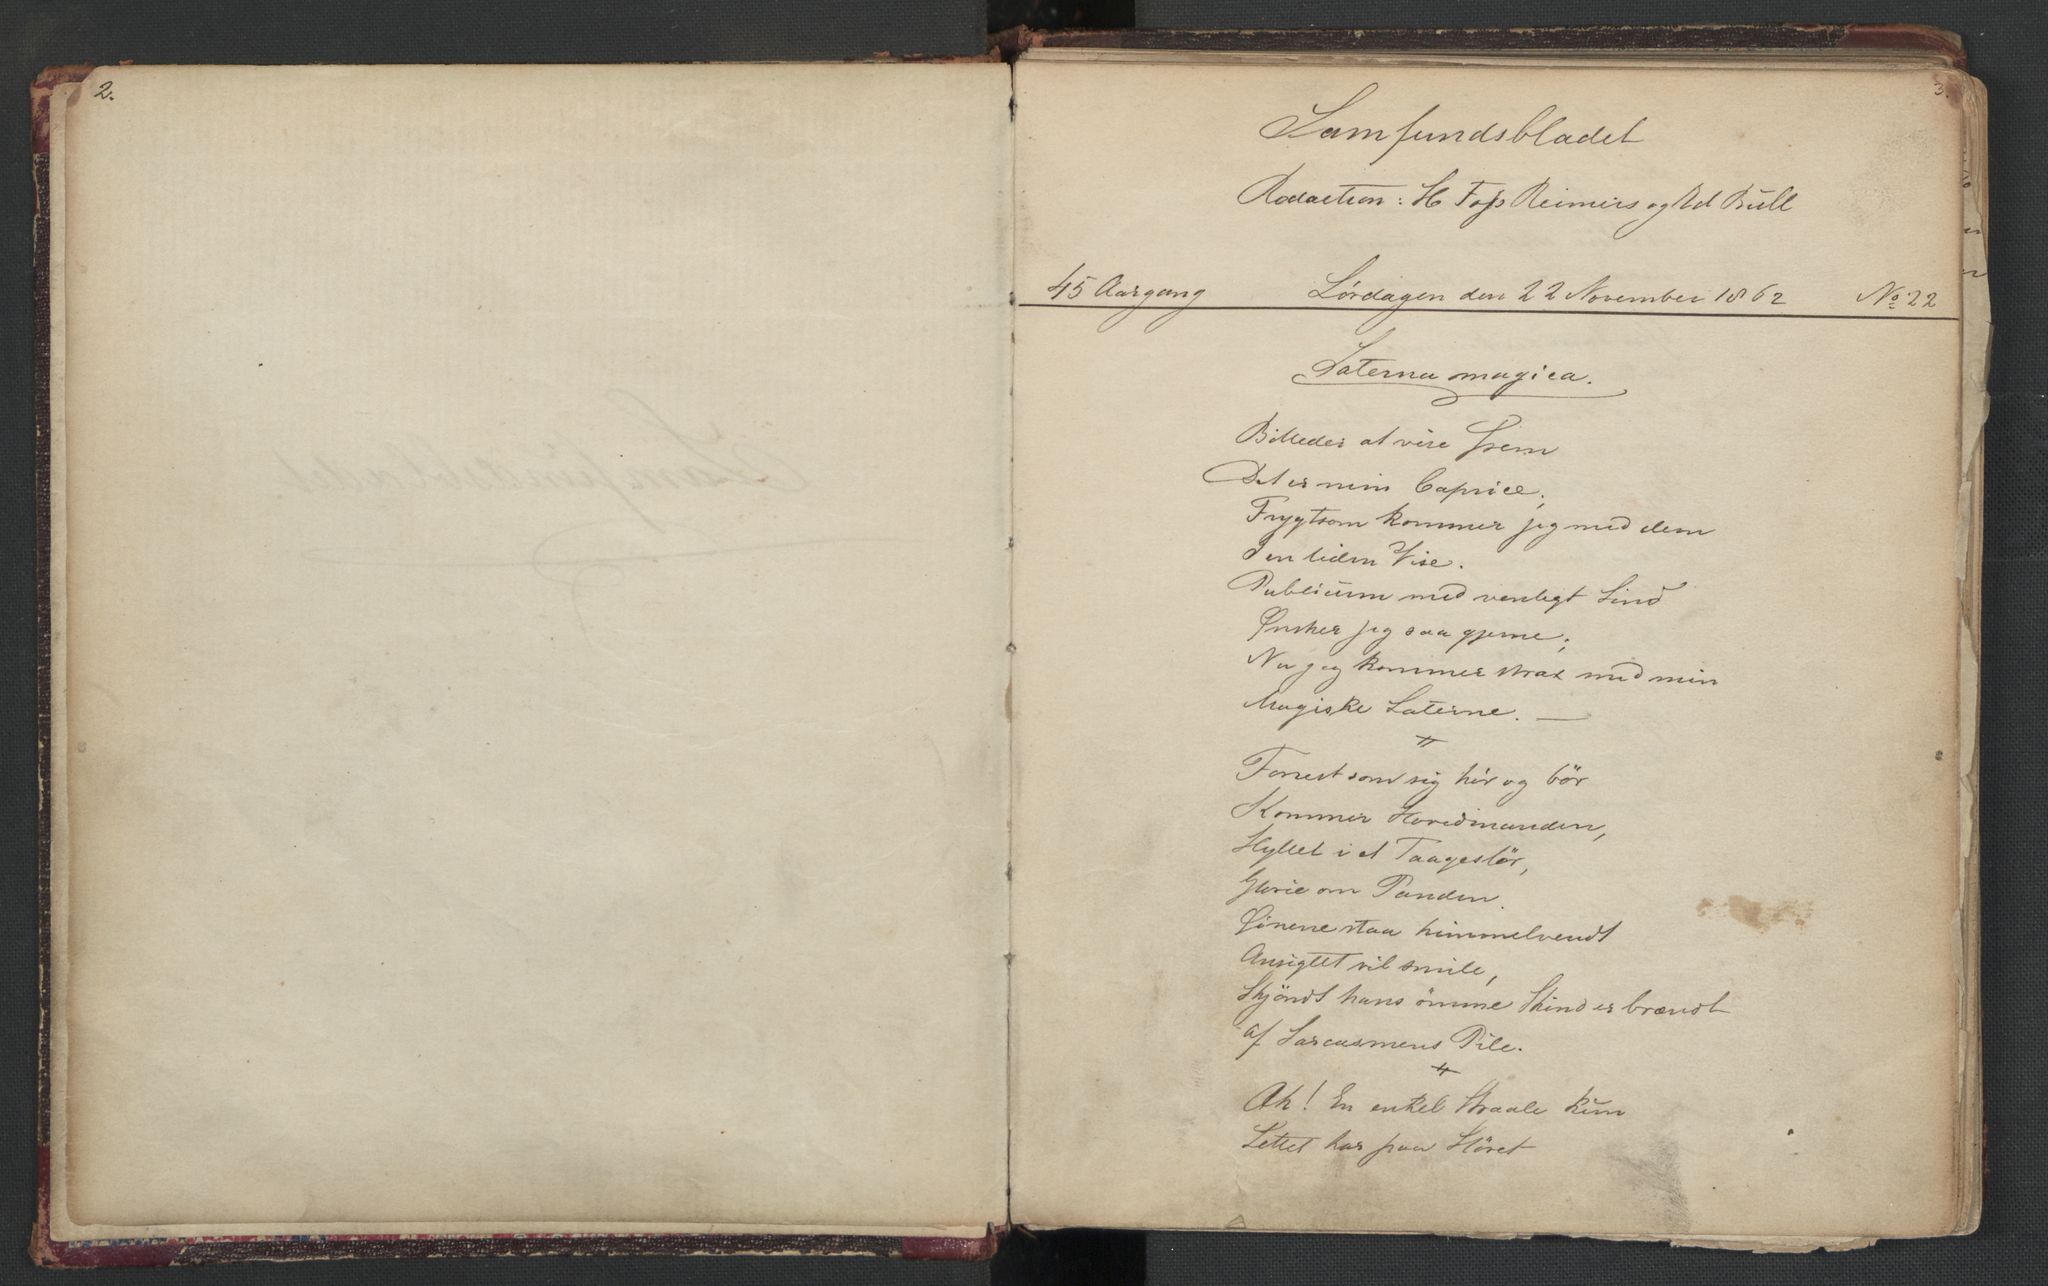 2.
3.
Samfundsbladet
Redaction: H Foss Reimers og Ed Bull
45 Aargang Lørdagen den 22 November 1862 No 22
Laterna magica.
Billeder at vise frem
Det er min Caprice;
Frygtsom kommer jeg med dem
I en liden Vise.
Publicum med venligt Sind
Ønsker jeg saa gjerne;
Nu jeg kommer strax med min
Magiske Laterne. —
Forrest som sig hör og bör
Kommer Hovedmanden,
Hyllet i et Taageslör,
Glorie om Panden.
Öinene staa himmelvendt
Ansigtet vil smile,
Skjöndt hans ömme Skind er brændt
af Sarcasmens Pile.
Ak! En enkel Straale kun
Lettet har paa Slöret